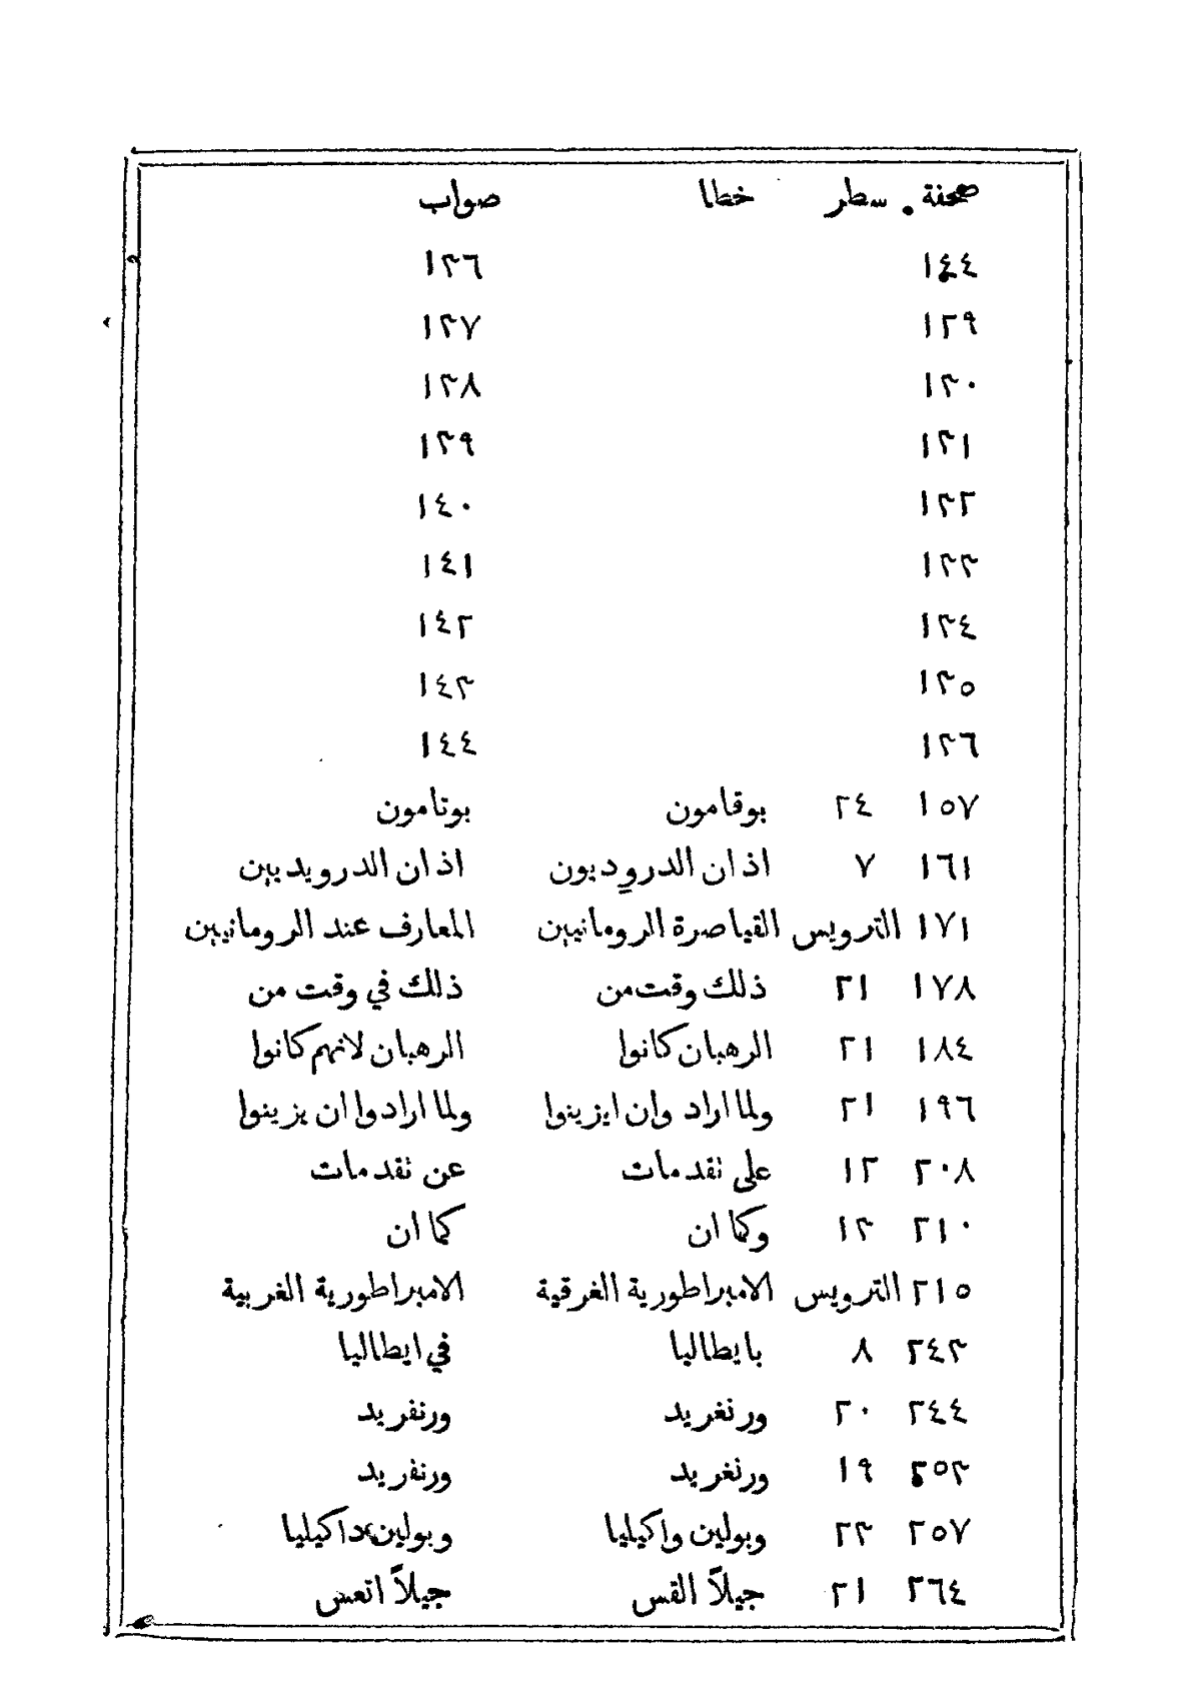 صحفة سطر خطا صواب
١٤٤ ١٣٦
١٢٩ ١٣٧
١٣٠ ١٣٨
١٣١ ١٣٩
١٣٢ ١٤٠
١٣٣ ١٤١
١٣٤ ١٤٢
١٣٥ ١٤٣
١٣٦ ١٤٤
١٥٧ ٢٤ بوقامون بوتامون
١٦١ ٧ اذ ان الدروديون اذ ان الدرويديين
١٧١ الترويس القياصرة الرومانيين المعارف عند الرومانيين
١٧٨ ٢١ ذلك وقت من ذلك في وقت من
١٨٤ ٢١ الرهبان كانوا الرهبان لانهم كانوا
١٩٦ ٢١ ولما اراد وان ايزينوا ولما ارادوا ان يزينوا
٢٠٨ ١٢ على تقدمات عن تقدمات
٢١٠ ١٣ وكما ان كما ان
٢١٥ الترويس الامبراطورية الغرقية الامبراطورية الغربية
٢٤٣ ٨ بايطاليا في ايطاليا
٢٤٤ ٢٠ ورنغريد ورنفريد
٢٥٣ ١٩ ورنغريد ورنفريد
٢٥٧ ٢٣ وبولين واكيليا وبولين داكيليا
٢٦٤ ٢١ جيلاً القس جيلاً اتعس